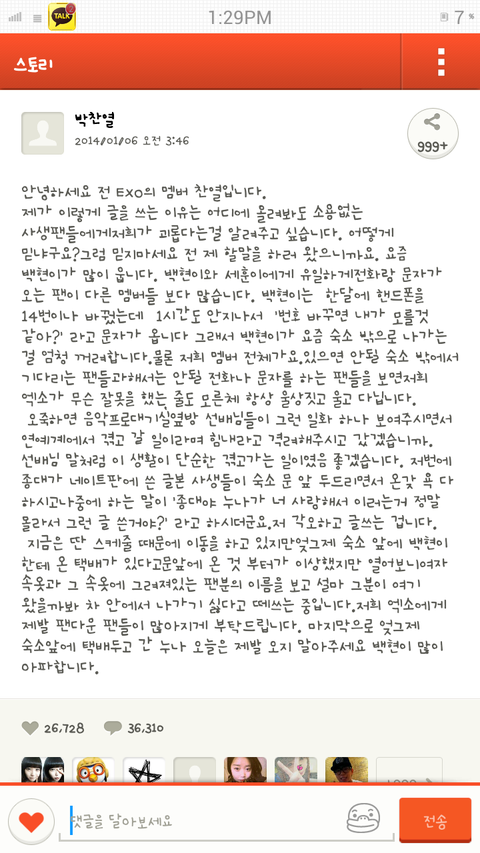 TALK
1:29PM
7%
스토리
박찬열
2014/01/06 오전 3:46
999+
안녕하세요 전 EXO의 멤버 찬열입니다.
제가 이렇게 글을 쓰는 이유는 어디에 올려봐도 소용없는
사생팬들에게저희가 괴롭다는걸 알려주고 싶습니다. 어떻게
믿냐구요?그럼 믿지마세요 전 제 할말을 하러 왔으니까요. 요즘
백현이가 많이 웁니다. 백현이와 세훈이에게 유일하게전화랑 문자가
오는 팬이 다른 멤버들 보다 많습니다. 백현이는 한달에 핸드폰을
14번이나 바꿨는데 1시간도 안지나서 '번호 바꾸면 내가 모를것
같아?' 라고 문자가 옵니다 그래서 백현이가 요즘 숙소 밖으로 나가는
걸 엄청 꺼려합니다.물론 저희 멤버 전체가요.있으면 안될 숙소 밖에서
기다리는 팬들과해서는 안될 전화나 문자를 하는 팬들을 보면저희
엑소가 무슨 잘못을 했는 줄도 모른체 항상 울상짓고 울고 다닙니다.
오죽하면 음악프로대기실옆방 선배님들이 그런 일화 하나 보여주시면서
연예계에서 겪고 갈 일이라며 힘내라고 격려해주시고 갔겠습니까.
선배님 말처럼 이 생활이 단순한 겪고가는 일이였음 좋겠습니다. 저번에
종대가 네이트판에 쓴 글본 사생들이 숙소 문 앞 두드리면서 온갖 욕 다
하시고나중에 하는 말이 '종대야 누나가 너 사랑해서 이러는거 정말
몰라서 그런 글 쓴거야?' 라고 하시더군요.저 각오하고 글쓰는 겁니다.
지금은 딴 스케줄 때문에 이동을 하고 있지만엊그제 숙소 앞에 백현이
한테 온 택배가 있다고문앞에 온 것 부터가 이상했지만 열어보니여자
속옷과 그 속옷에 그려져있는 팬분의 이름을 보고 설마 그분이 여기
왔을까봐 차 안에서 나가기 싫다고 떼쓰는 중입니다.저희 엑소에게
제발 팬다운 팬들이 많아지게 부탁드립니다. 마지막으로 엊그제
숙소앞에 택배두고 간 누나 오늘은 제발 오지 말아주세요 백현이 많이
아파합니다.
26,728
36,310
댓글을 달아보세요
전송